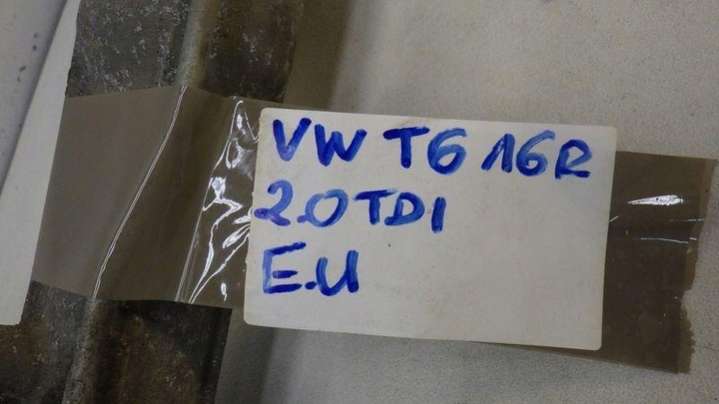 VW T6 16R
2.0 TDI
E.U